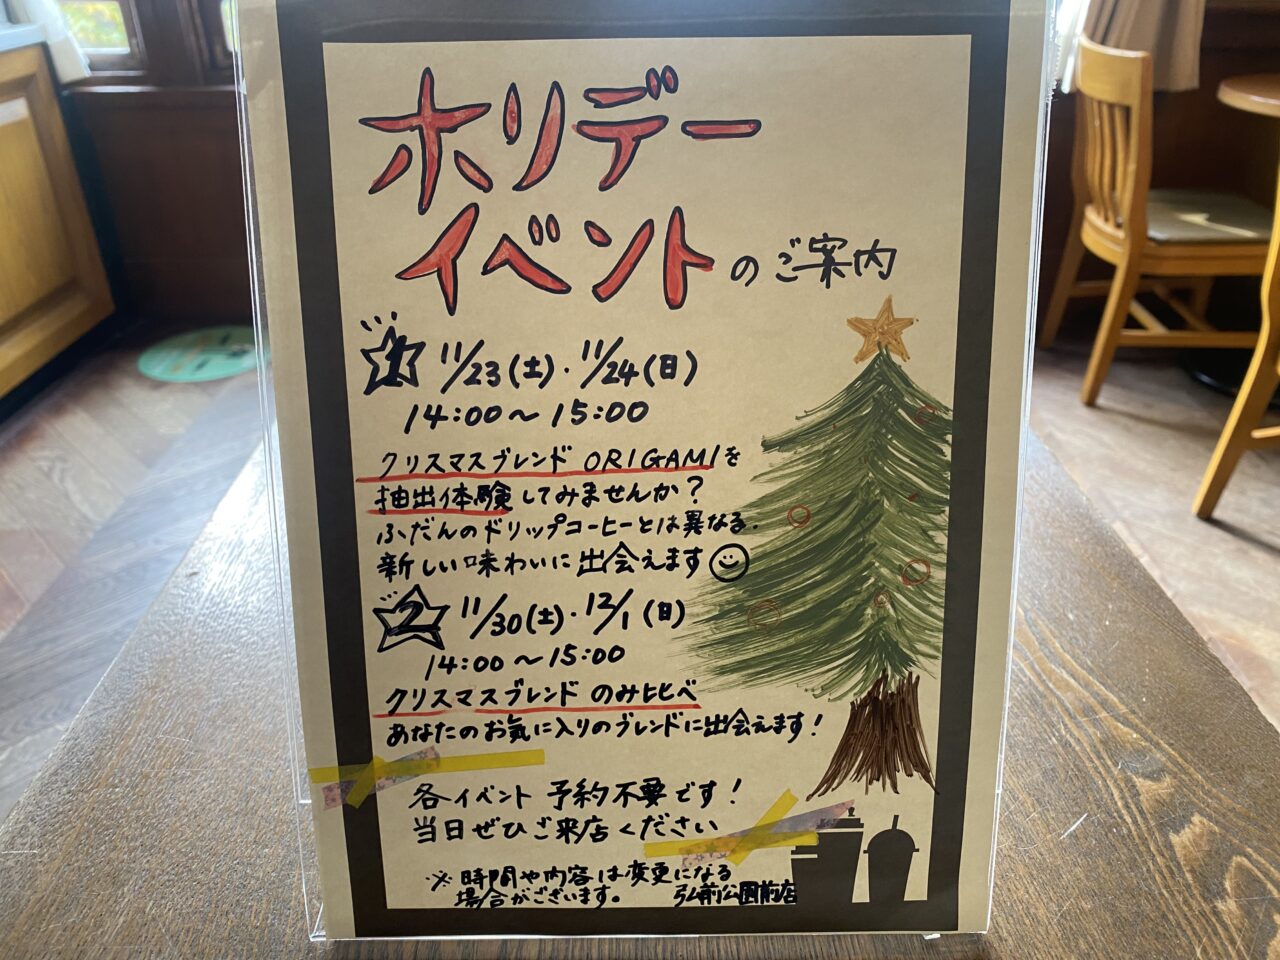 ホリデー
イベントのご案内
1 11/23(土)・11/24(日)
14:00〜15:00
クリスマスブレンド ORIGAMIを
抽出体験してみませんか?
ふだんのドリップコーヒーとは異なる、
新しい味わいに出会えます
2 11/30(土)・12/1(日)
14:00〜15:00
クリスマスブレンド のみ比べ
あなたのお気に入りのブレンドに出会えます!
各イベント 予約不要です!
当日ぜひご来店ください
※時間や内容は変更になる
場合がございます。 弘前公園前店